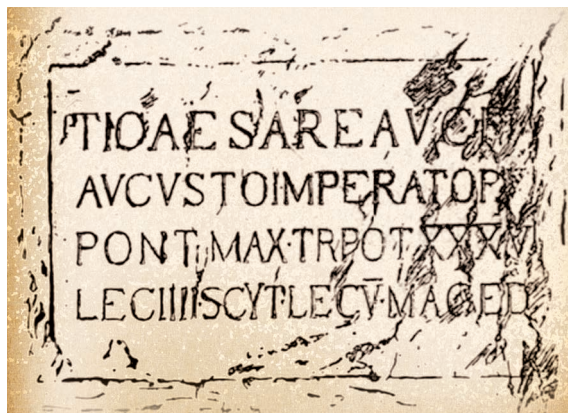 TICAESAREAVGF
AVGVSTOIMPERATOR
PONT MAX·TRPOT XXXV
LEGIIIISCYT·LEGV·MACED